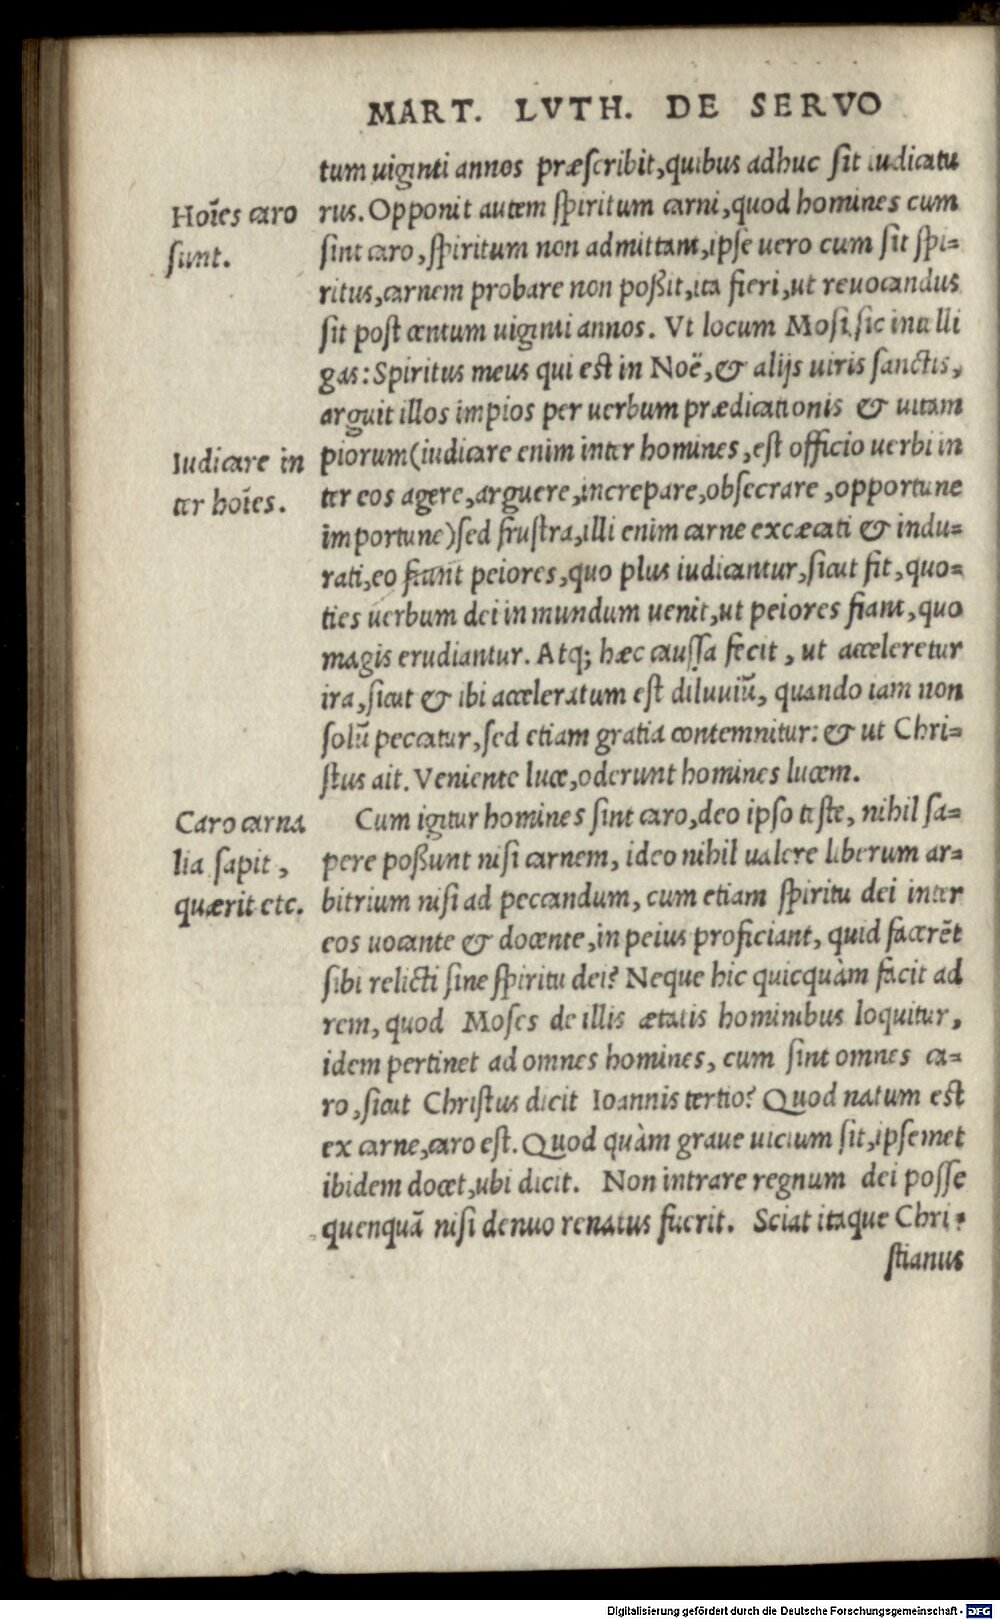 MART. LVTH. DE SERVO
tum uiginti annos præſcribit, quibus adhuc ſit iudicatu
rus. Opponit autem ſpiritum carni, quod homines cum
ſint caro, ſpiritum non admittant, ipſe uero cum ſit ſpi=
ritus, carnem probare non poßit, ita fieri, ut reuocandus
ſit poſt centum uiginti annos. Vt locum Moſi ſic intelli
gas: Spiritus meus qui eſt in Noë, & alijs uiris ſanctis,
arguit illos impios per uerbum prædicationis & uitam
piorum (iudicare enim inter homines, eſt officio uerbi in
ter eos agere, arguere, increpare, obſecrare, opportune
importune) ſed fruſtra, illi enim carne excæcati & indu=
rati, eo fiunt peiores, quo plus iudicantur, ſicut fit, quo=
ties uerbum dei in mundum uenit, ut peiores fiant, quo
magis erudiantur. Atq; hæc cauſſa fecit, ut acceleretur
ira, ſicut & ibi acceleratum eſt diluuiũ, quando iam non
ſolũ peccatur, ſed etiam gratia contemnitur: & ut Chri=
ſtus ait. Veniente luce, oderunt homines lucem.
Cum igitur homines ſint caro, deo ipſo teſte, nihil ſa=
pere poßunt niſi carnem, ideo nihil ualere liberum ar=
bitrium niſi ad peccandum, cum etiam ſpiritu dei inter
eos uocante & docente, in peius proficiant, quid facerẽt
ſibi relicti ſine ſpiritu dei? Neque hic quicquàm facit ad
rem, quod Moſes de illis ætatis hominibus loquitur,
idem pertinet ad omnes homines, cum ſint omnes ca=
ro, ſicut Chriſtus dicit Ioannis tertio? Quod natum eſt
ex carne, caro eſt. Quod quàm graue uicium ſit, ipſemet
ibidem docet, ubi dicit. Non intrare regnum dei poſſe
quenquã niſi denuo renatus fuerit. Sciat itaque Chri=
ſtianus
Hoĩes caro
ſunt.
Iudicare in
ter hoĩes.
Caro carna
lia ſapit,
quærit etc.
Digitalisierung gefördert durch die Deutsche Forschungsgemeinschaft - DFG